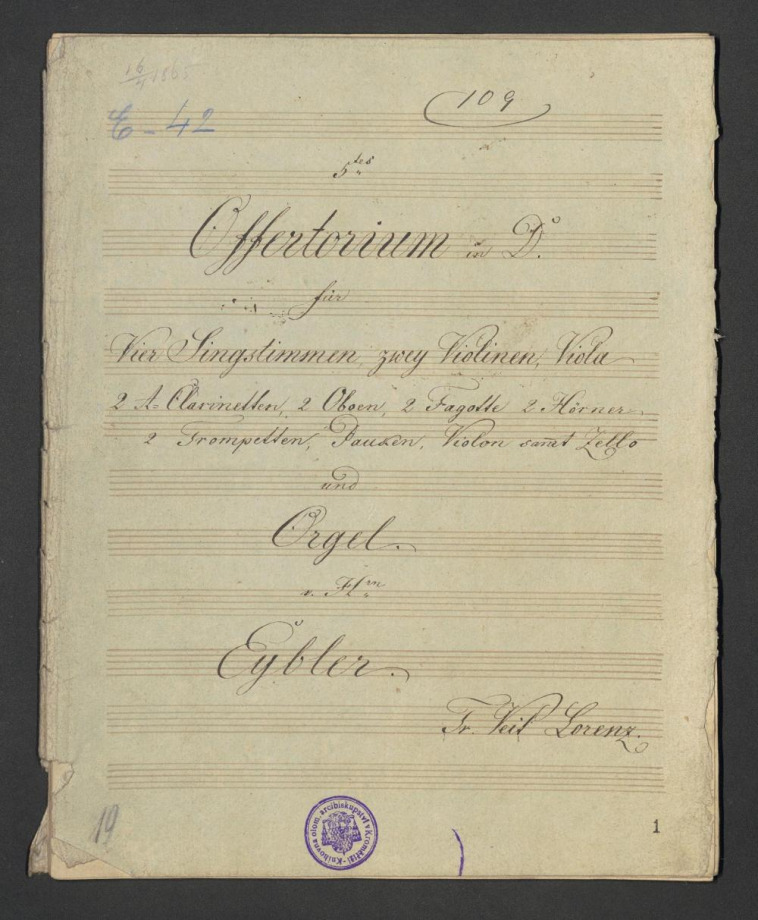 16/4 1865
E - 42
109
5tes
Offertorium in D.
für
Vier Singstimmen, zwey Violinen, Viola
2 A- Clarinetten, 2 Oboen, 2 Fagotte 2 Hörner
2 Trompetten, Pauken, Violon samt Zello
und
Orgel.
v. Hrn
Eybler.
Fr. Veit Lorenz.
19
Knihovna olom. arcibiskupství v Kroměříži
1